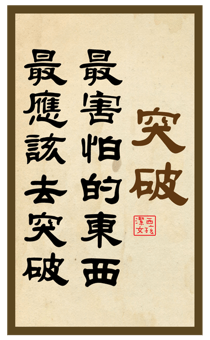 突破
最害怕的東西
最應該去突破